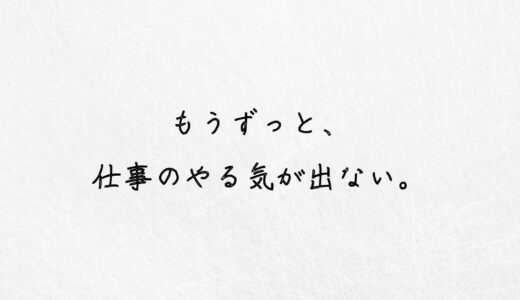 もうずっと、
仕事のやる気が出ない。